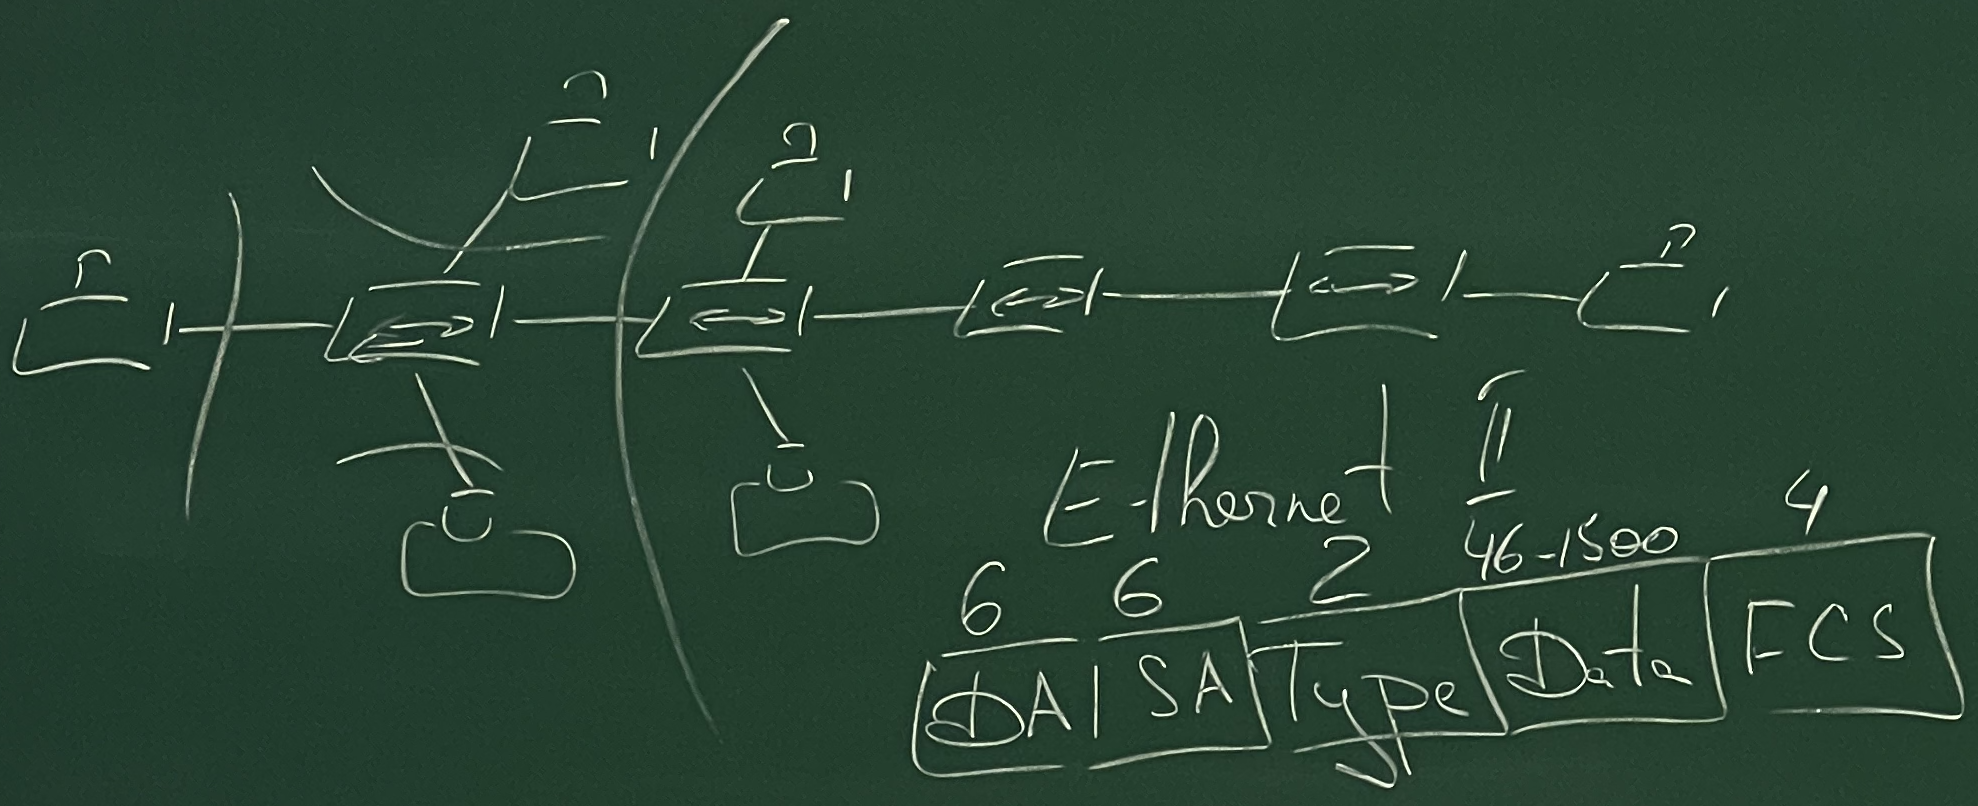 Ethernet II
6 6 2 46-1500 4
DA SA Type Data FCS